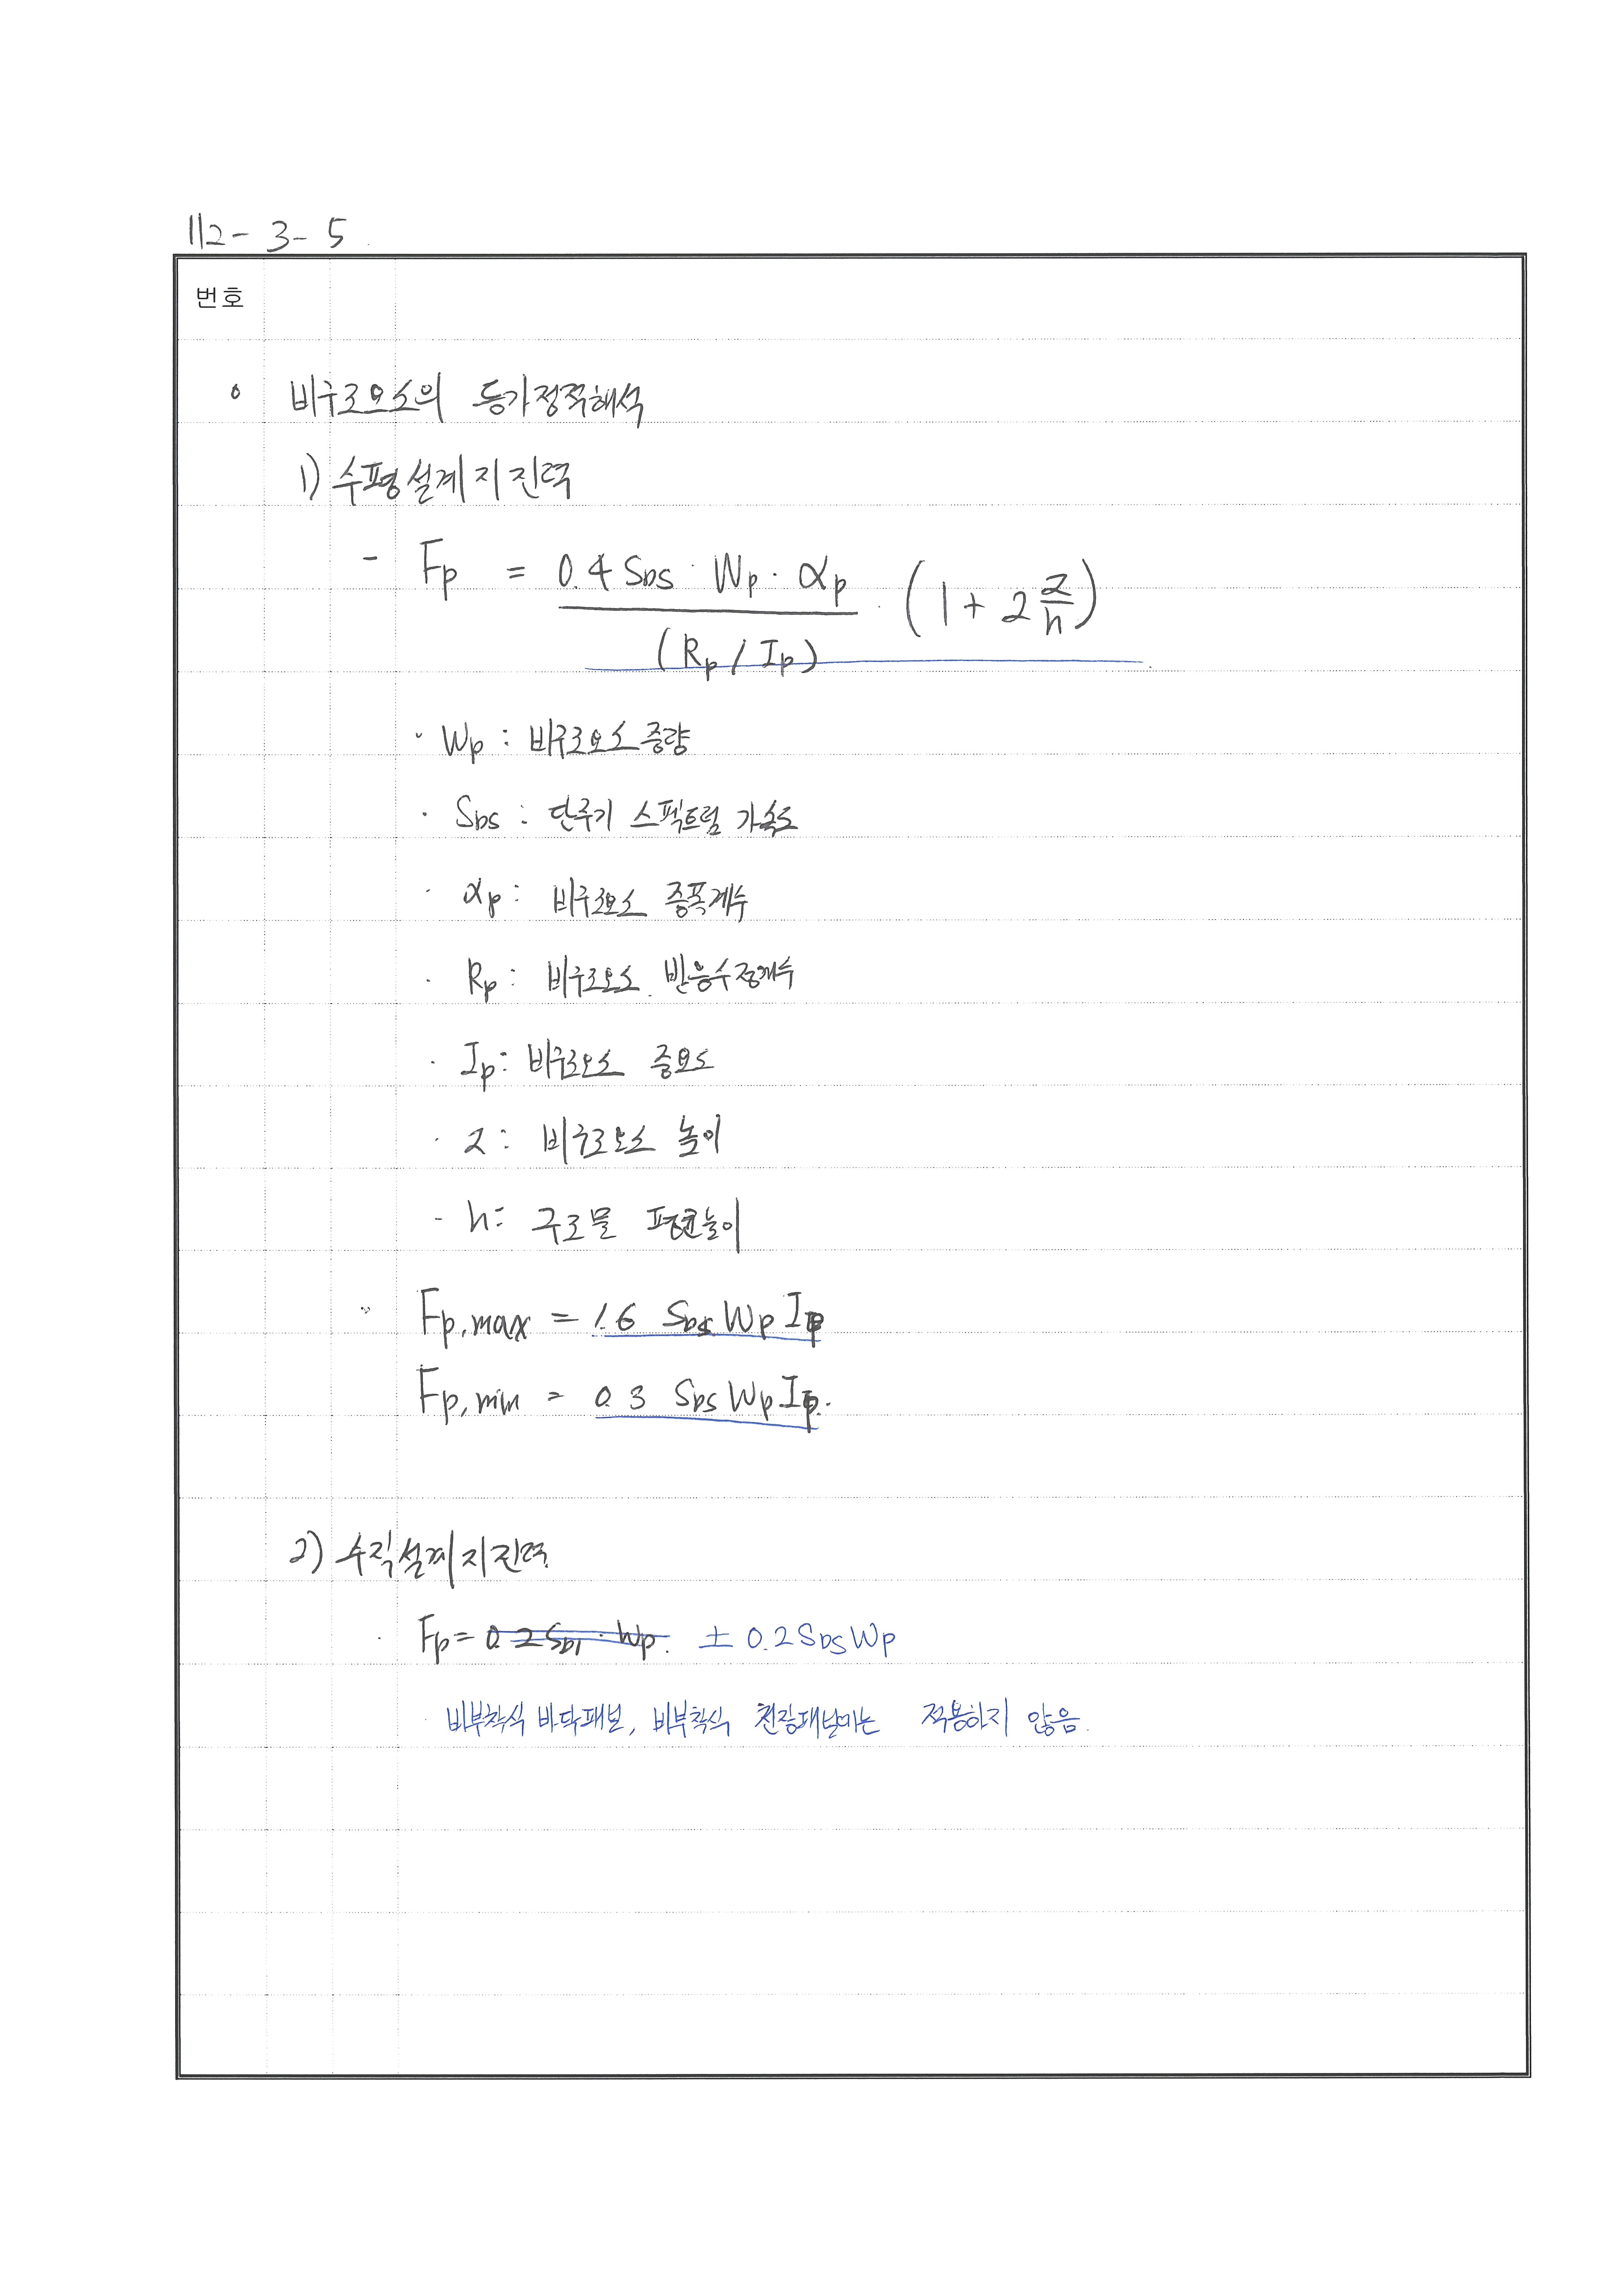 112-3-5.
번호
o 비구조요소의 등가정적해석
1) 수평설계지진력
- Fp = 0.4 SDS · Wp · αp / (Rp / Ip) · (1 + 2 z/h)
· Wp : 비구조요소 중량
· SDS : 단주기 스펙트럼 가속도
· αp : 비구조요소 증폭계수
· Rp : 비구조요소 반응수정계수
· Ip : 비구조요소 중요도
· z : 비구조요소 높이
- h : 구조물 평균높이
Fp,max = 1.6 SDS Wp Ip
Fp,min = 0.3 SDS Wp Ip.
2) 수직설계지진력
· Fp = 0.2 SDS · Wp. ± 0.2 SDS Wp
· 비부착식 바닥패널, 비부착식 천장패널에는 적용하지 않음.